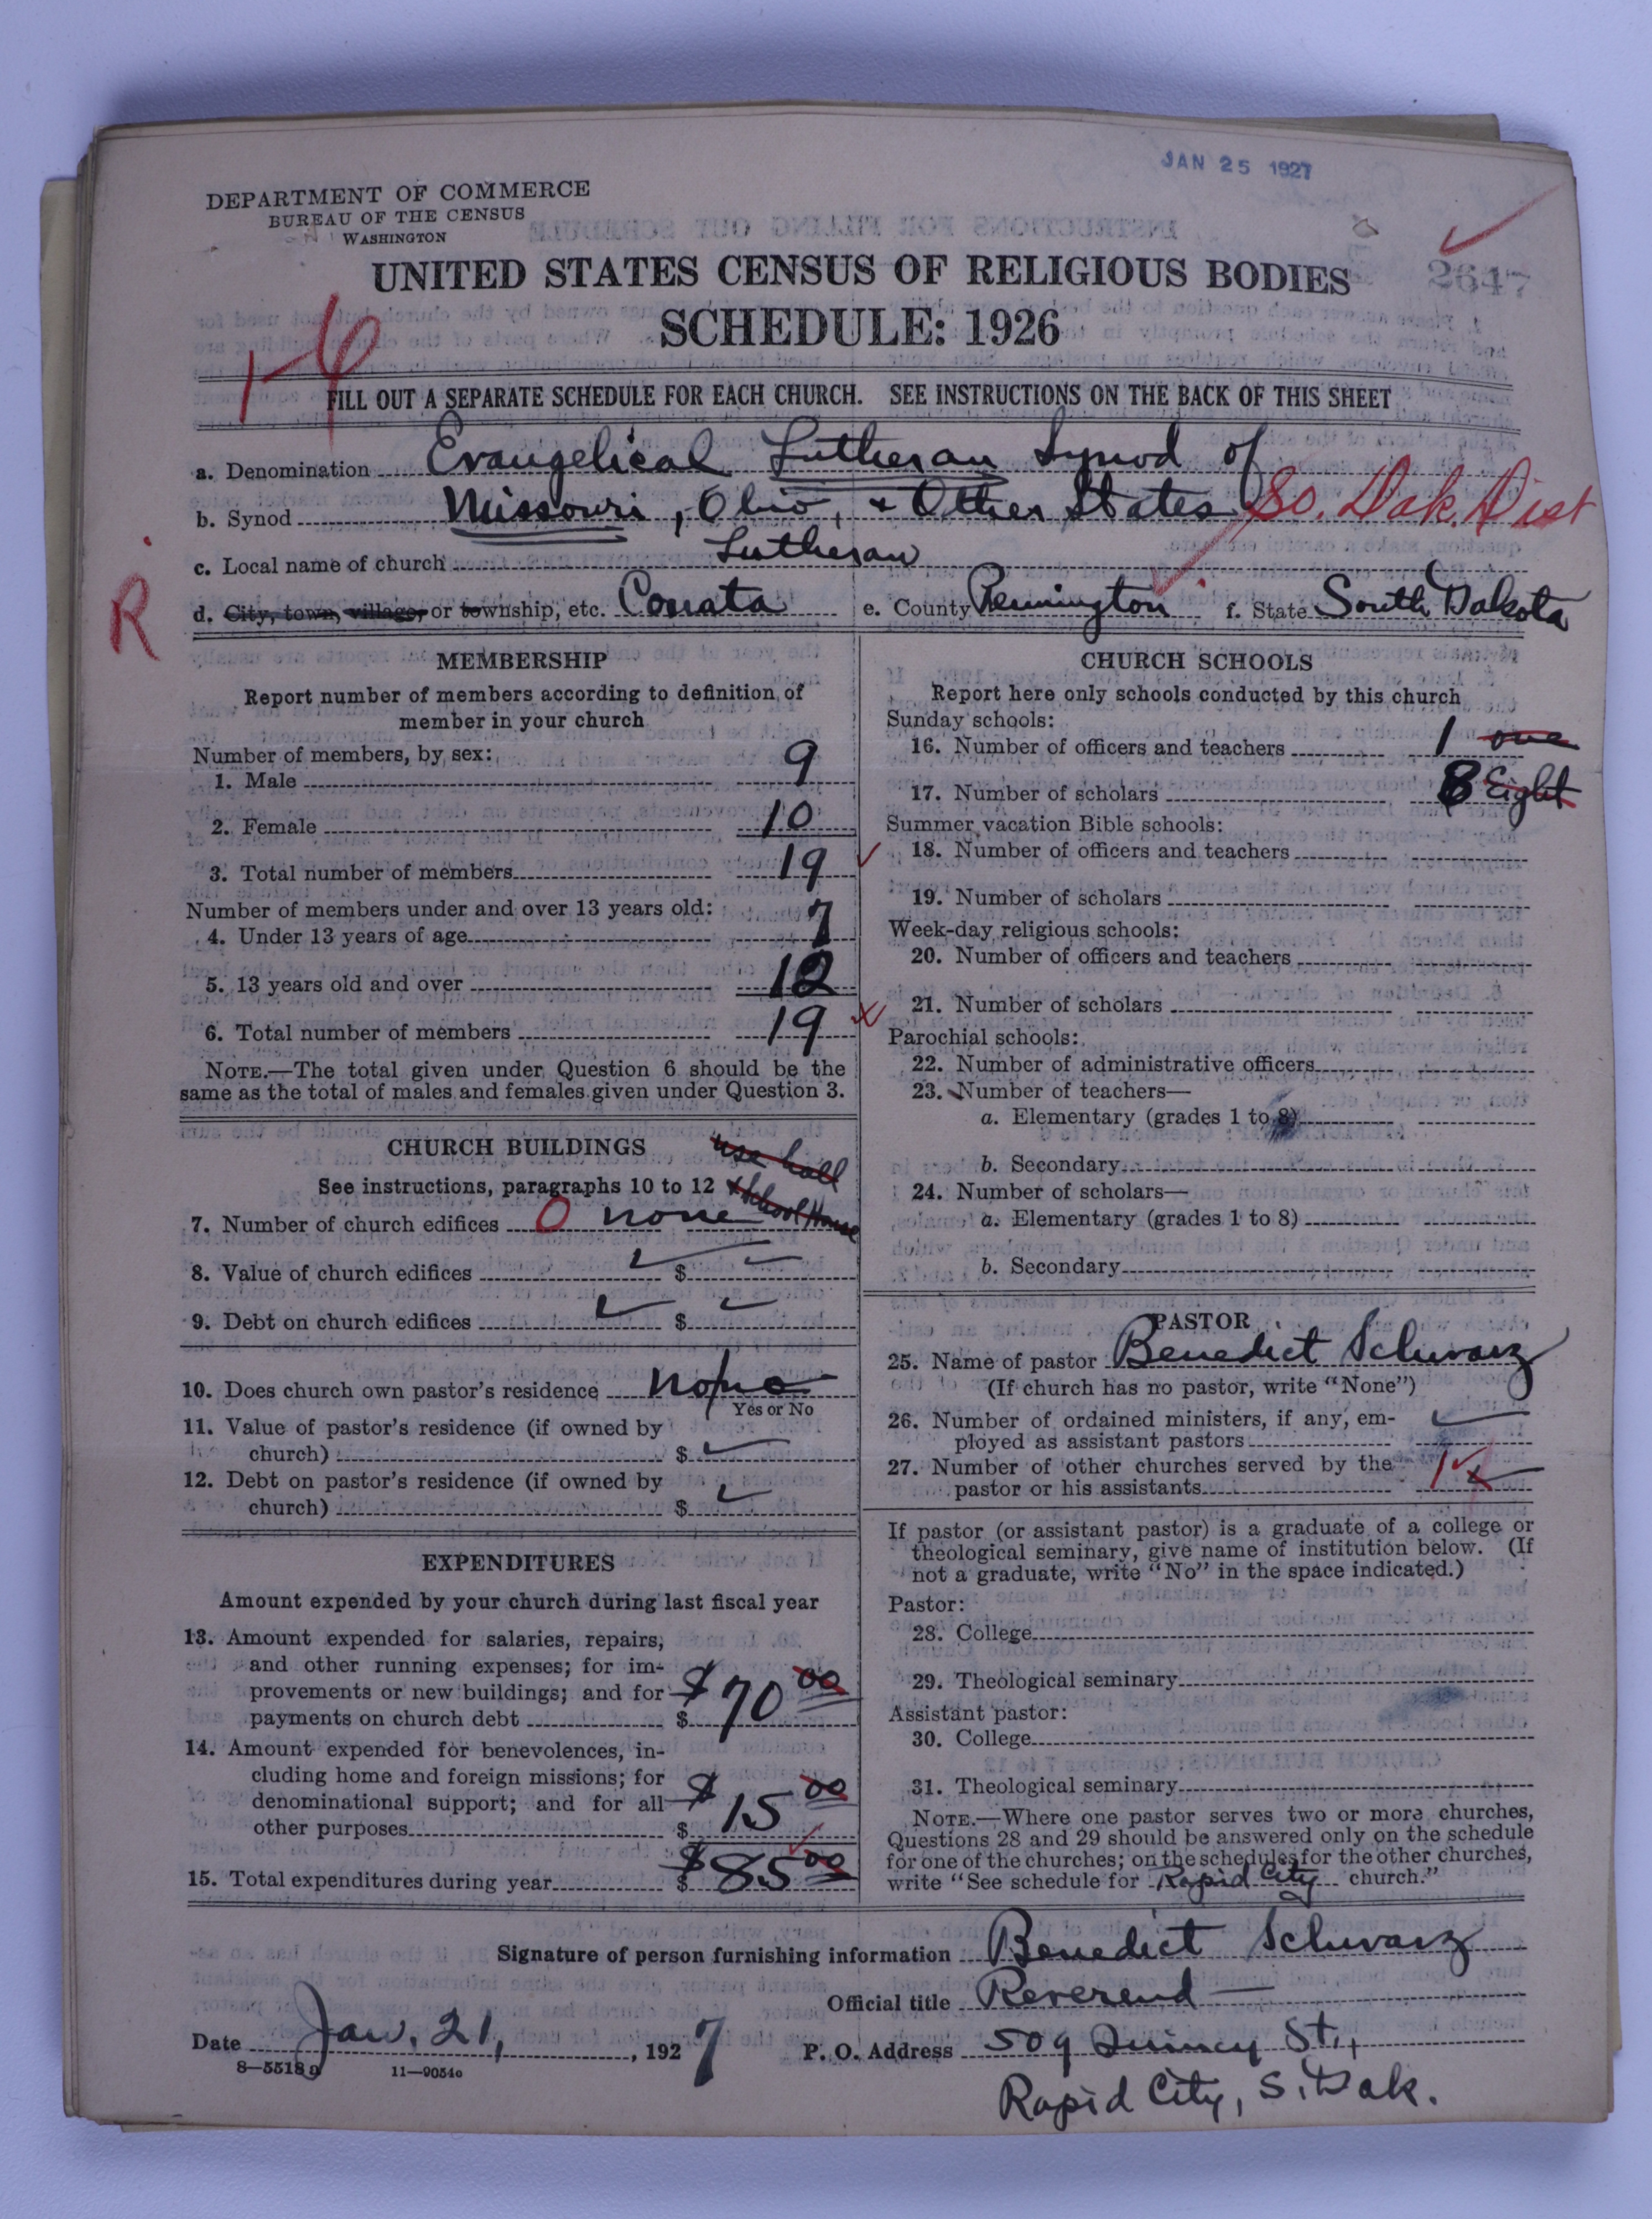 JAN 25 1927
DEPARTMENT OF COMMERCE
BUREAU OF THE CENSUS
WASHINGTON
UNITED STATES CENSUS OF RELIGIOUS BODIES
2647
SCHEDULE: 1926
1-6
FILL OUT A SEPARATE SCHEDULE FOR EACH CHURCH. SEE INSTRUCTIONS ON THE BACK OF THIS SHEET
a. Denomination Evangelical Lutheran Synod of
b. Synod Missouri, Ohio, + Other States So. Dak. Dist
c. Local name of church Lutheran
R
d. City, town, village, or township, etc. Conata e. County Pennington f. State South Dakota
MEMBERSHIP
Report number of members according to definition of
member in your church
Number of members, by sex:
1. Male 9
2. Female 10
3. Total number of members 19
Number of members under and over 13 years old:
4. Under 13 years of age 7
5. 13 years old and over 12
6. Total number of members 19
NOTE.—The total given under Question 6 should be the
same as the total of males and females given under Question 3.
CHURCH BUILDINGS use hall
See instructions, paragraphs 10 to 12 + School House
7. Number of church edifices 0 none
8. Value of church edifices $
9. Debt on church edifices $
10. Does church own pastor's residence no
Yes or No
11. Value of pastor's residence (if owned by
church) $
12. Debt on pastor's residence (if owned by
church) $
EXPENDITURES
Amount expended by your church during last fiscal year
13. Amount expended for salaries, repairs,
and other running expenses; for im-
provements or new buildings; and for
payments on church debt $ $70 00
14. Amount expended for benevolences, in-
cluding home and foreign missions; for
denominational support; and for all
other purposes $ $15 00
15. Total expenditures during year $ $85 00
CHURCH SCHOOLS
Report here only schools conducted by this church
Sunday schools:
16. Number of officers and teachers 1 one
17. Number of scholars 8 Eight
Summer vacation Bible schools:
18. Number of officers and teachers
19. Number of scholars
Week-day religious schools:
20. Number of officers and teachers
21. Number of scholars
Parochial schools:
22. Number of administrative officers
23. Number of teachers—
a. Elementary (grades 1 to 8)
b. Secondary
24. Number of scholars—
a. Elementary (grades 1 to 8)
b. Secondary
PASTOR
25. Name of pastor Benedict Schwarz
(If church has no pastor, write "None")
26. Number of ordained ministers, if any, em-
ployed as assistant pastors
27. Number of other churches served by the
pastor or his assistants 1
If pastor (or assistant pastor) is a graduate of a college or
theological seminary, give name of institution below. (If
not a graduate, write "No" in the space indicated.)
Pastor:
28. College
29. Theological seminary
Assistant pastor:
30. College
31. Theological seminary
NOTE.—Where one pastor serves two or more churches,
Questions 28 and 29 should be answered only on the schedule
for one of the churches; on the schedules for the other churches,
write "See schedule for Rapid City church."
Signature of person furnishing information Benedict Schwarz
Official title Reverend
Date Jan. 21, 1927 P. O. Address 509 Quincy St.,
8—5518a 11—9054o
Rapid City, S. Dak.